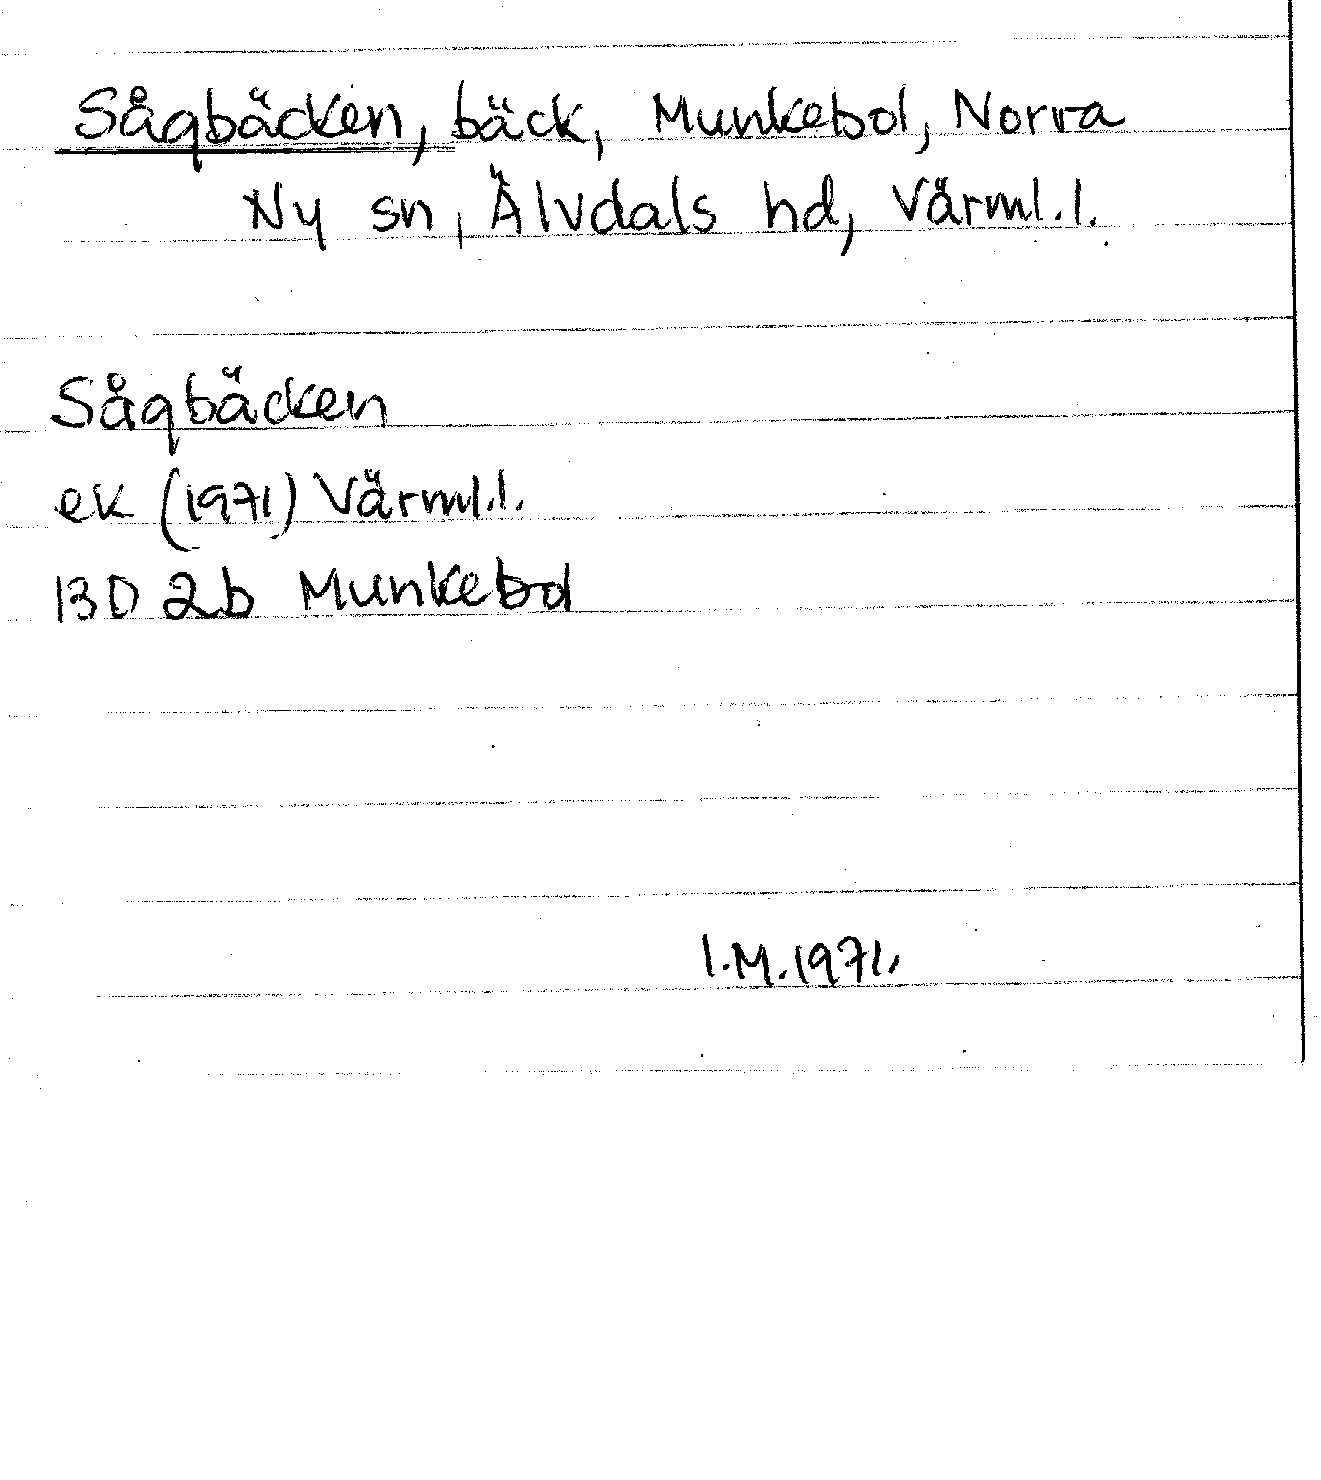 Sågbäcken, bäck, Munkebol, Norra
Ny sn, Älvdals hd, Värml.l.
Sågbäcken
ek (1971) Värml.l.
13D 2b Munkebol
I.M.1971.